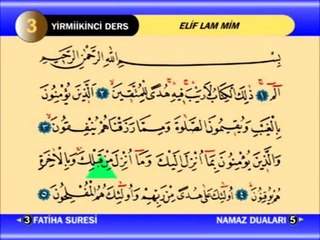 3 YİRMİİKİNCİ DERS ELİF LAM MİM
بِسْمِ اللّٰهِ الرَّحْمٰنِ الرَّحِيمِ
الٓمٓ ﴿١﴾ ذٰلِكَ الْكِتَابُ لَا رَيْبَ فِيهِ هُدًى لِلْمُتَّقِينَ ﴿٢﴾ اَلَّذِينَ يُؤْمِنُونَ
بِالْغَيْبِ وَيُقِيمُونَ الصَّلٰوةَ وَمِمَّا رَزَقْنَاهُمْ يُنْفِقُونَ ﴿٣﴾
وَالَّذِينَ يُؤْمِنُونَ بِمَٓا اُنْزِلَ اِلَيْكَ وَمَٓا اُنْزِلَ مِنْ قَبْلِكَ وَبِالْاٰخِرَةِ
هُمْ يُوقِنُونَ ﴿٤﴾ اُو۬لٰٓئِكَ عَلٰى هُدًى مِنْ رَبِّهِمْ وَاُو۬لٰٓئِكَ هُمُ الْمُفْلِحُونَ ﴿٥﴾
3 FATİHA SURESİ NAMAZ DUALARI 5